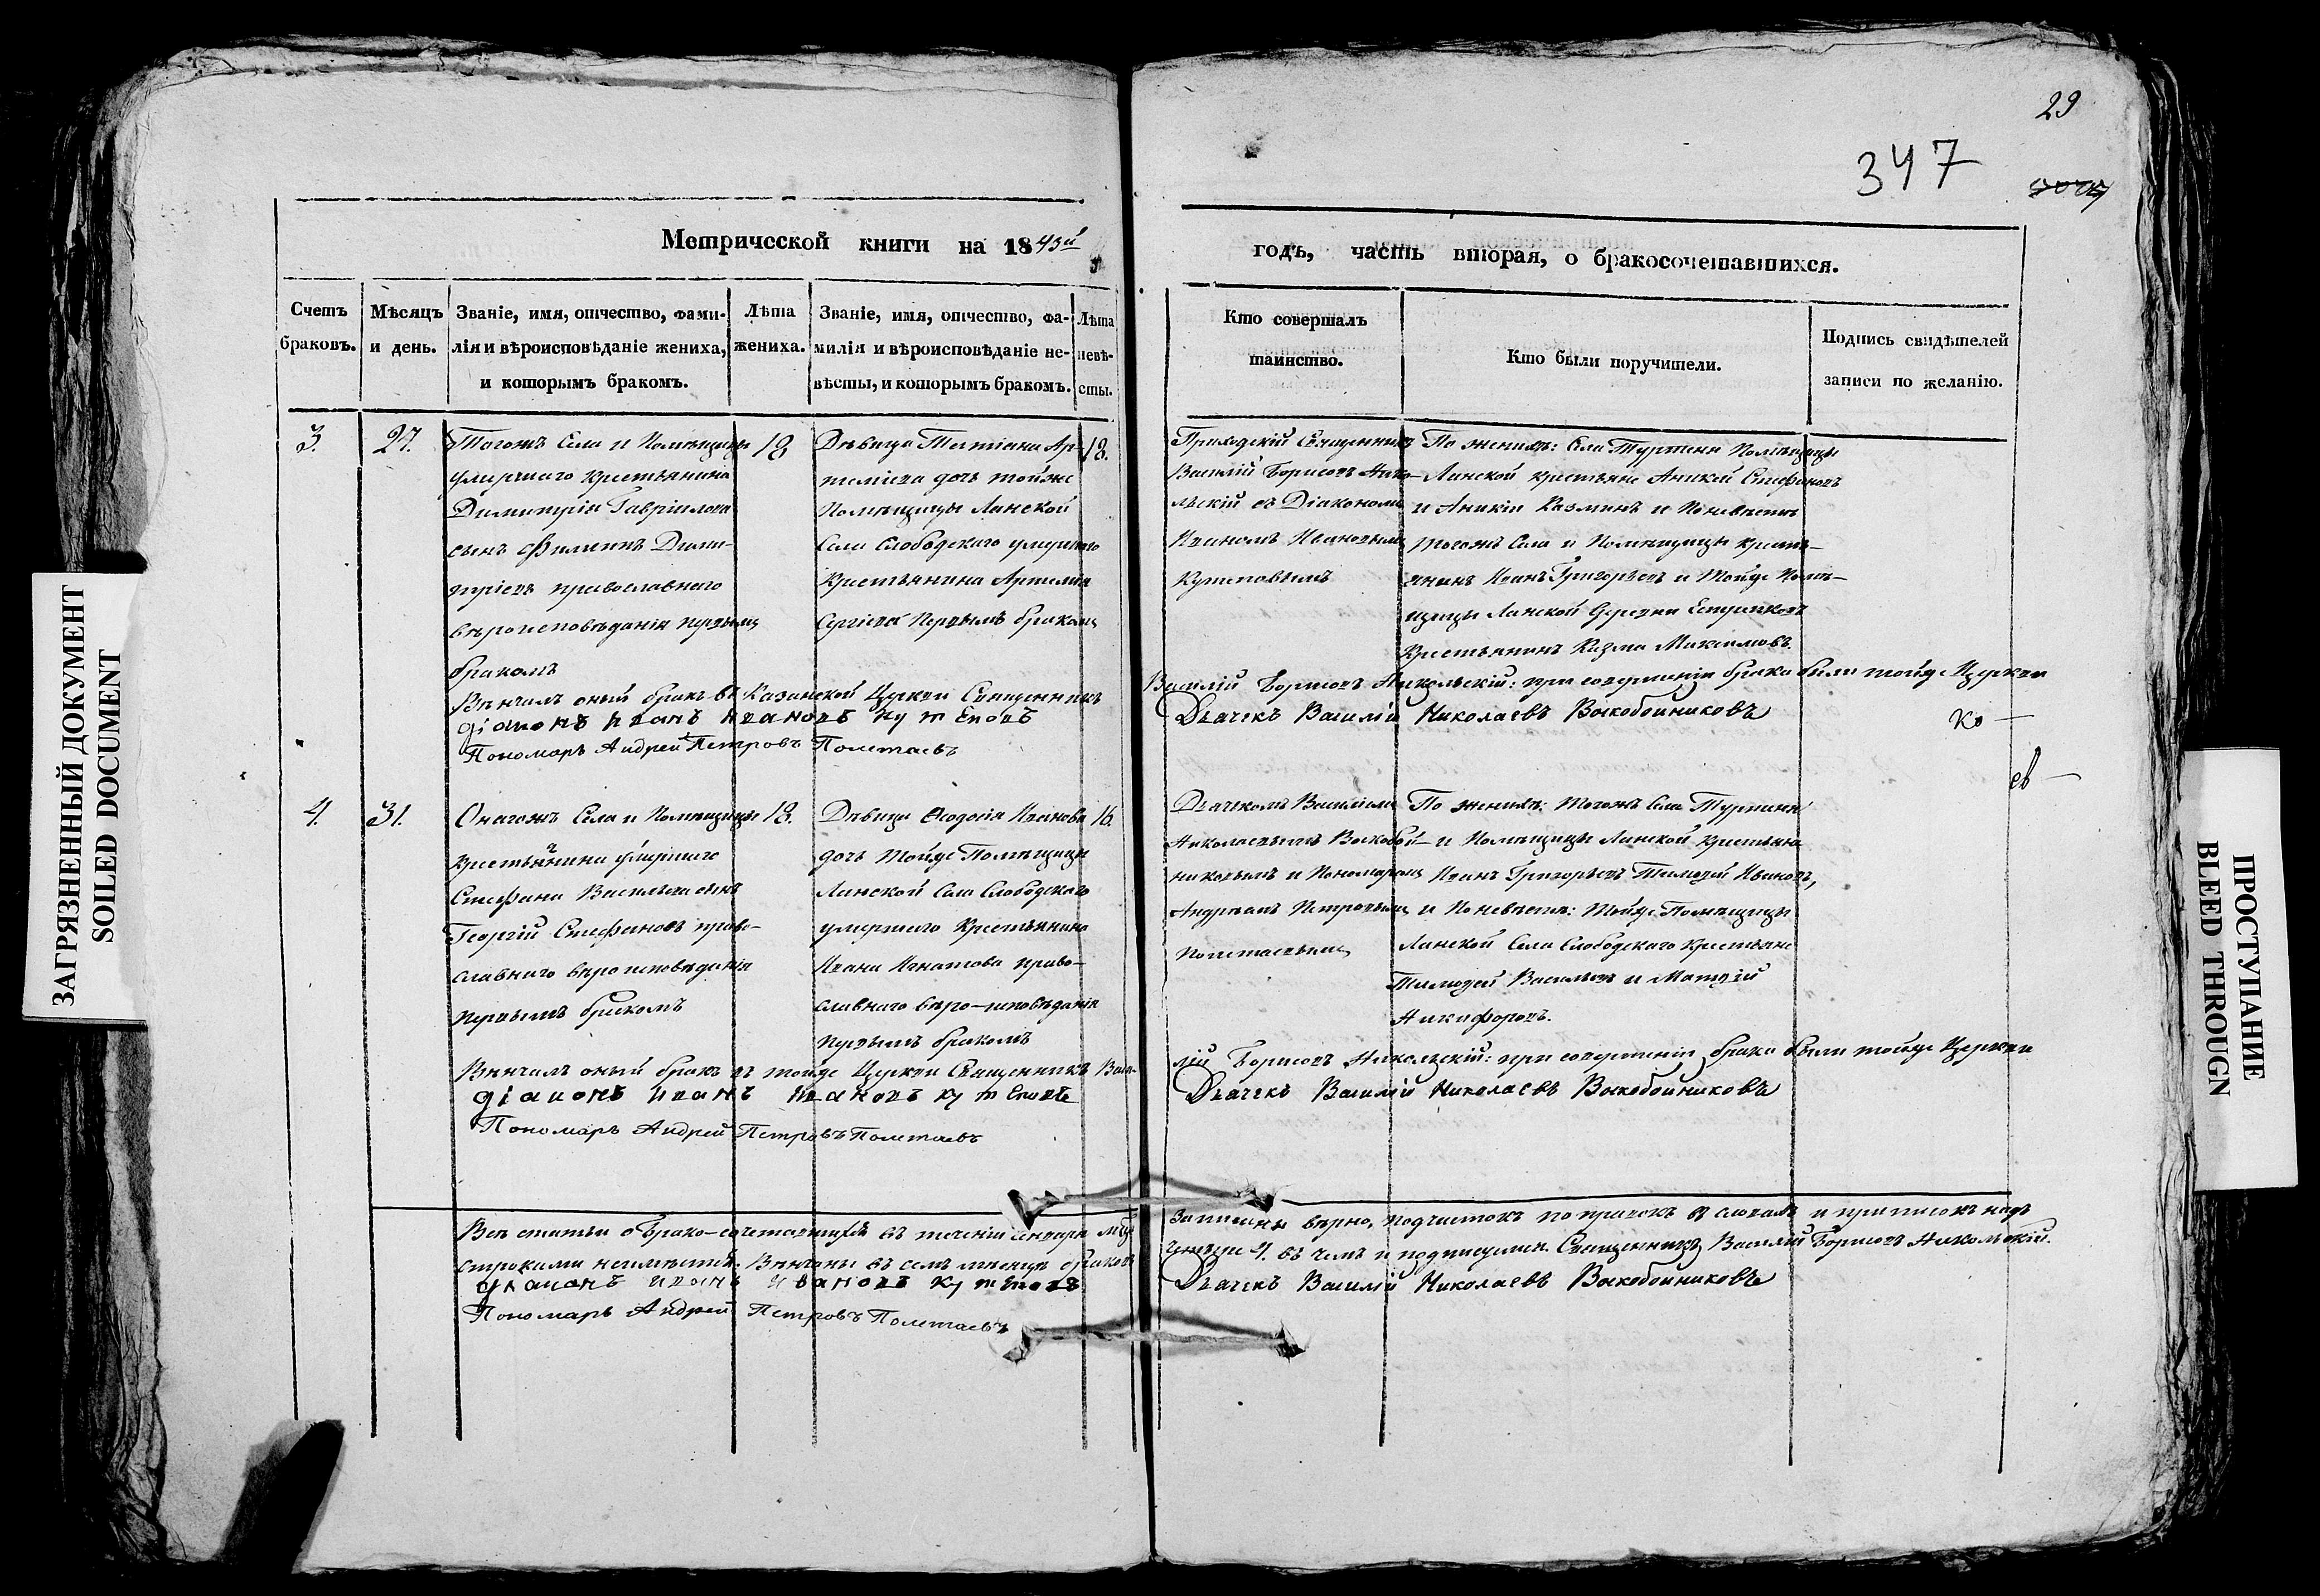 29
347
Метрической книги на 1843й
годъ, часть вторая, о бракосочетавшихся.
Счетъ браковъ.
Мѣсяцъ и день.
Званіе, имя, отчество, фами-
лія и вѣроисповѣданіе жениха,
и которымъ бракомъ.
Лѣта
жениха.
Званіе, имя, отчество, фа-
милія и вѣроисповѣданіе не-
вѣсты, и которымъ бракомъ.
Лѣта
невѣ-
сты.
Кто совершалъ
таинство.
Кто были поручители.
Подпись свидѣтелей
записи по желанію.
3.
27.
Тогожъ Села и Помѣщицы
умершаго крестьянина
Димитрія Гавріилова
сынъ Филиппъ Дими-
тріевъ православнаго
вѣроисповѣданія первымъ
бракомъ
18
Дѣвица Татіана Ар-
теміева дочь тойже
Помѣщицы Ланской
Села Слободскаго умершаго
Крестьянина Артемія
Сергіева Первымъ бракомъ
18.
Приходскій Священникъ
Василій Борисовъ Нико-
льскій съ Діакономъ
Иваномъ Ивановымъ
Кутеповымъ
По женихѣ: Села Туртени Помѣщицы
Ланской крестьяне Аникей Стефановъ
и Аникіи Казминъ и Поневѣстѣ
тогожъ Села и Помѣщицы крестъ-
янинъ Иванъ Григорьевъ и Тойже Помѣ-
щицы Ланской Деревни
Крестьянинъ Казма Максимовъ.
Вѣнчалъ оный бракъ въ Казанской Церкви Священникъ
Василій Борисовъ Никольскій: при совершеніи брака были тойже Церкви
діаконъ иванъ ивановъ кутеповъ
Дьячекъ Василій Николаевъ Воскобойниковъ
Пономарь Андрей Петровъ Полетаевъ
ко —
св —
4.
31.
Онагожъ Села и Помѣщицы
крестьянина умершаго
Стефана Васильева сынъ
Георгій Стефановъ право-
славнаго вѣроисповѣданія
первымъ бракомъ
18.
Дѣвица Ѳеодосія Иванова
дочь Тойже Помѣщицы
Ланской Села Слободскаго
умершаго Крестьянина
Ивана Игнатова право-
славнаго вѣро-исповѣданія
первымъ бракомъ
16.
Дьячкомъ Василіемъ
Николаевымъ Воскобой-
никовымъ и Пономаремъ
Андреемъ Петровымъ
Полетаевымъ
По женихѣ: Тогожъ Села Туртени
и Помѣщицы Ланской крестьяне
Иванъ Григорьевъ Тимоѳей Ивановъ,
и Поневѣстѣ: Тойже Помѣщицы
Ланской Села Слободскаго крестьяне
Тимоѳей Васильевъ и Матѳій
Никифоровъ.
Вѣнчалъ оный бракъ въ тойже Церкви Священникъ Васи-
лій Борисовъ Никольскій: при совершеніи брака были тойже Церкви
діаконъ иванъ ивановъ кутеповъ
Дьячекъ Василій Николаевъ Воскобойниковъ
Пономарь Андрей Петровъ Полетаевъ
Всѣ статьи о Брако-сочетавшихся въ теченіи Генваря мца
записаны вѣрно, подчистокъ поправокъ въ словахъ и приписокъ надъ
строками неимѣется. Вѣнчаны въ семъ мѣсяцѣ браковъ
4. въ чемъ и подписуемся. Священникъ Василій Борисовъ Никольскій.
діаконъ иванъ ивановъ кутеповъ
Дьячекъ Василій Николаевъ Воскобойниковъ
Пономарь Андрей Петровъ Полетаевъ
ЗАГРЯЗНЕННЫЙ ДОКУМЕНТ
SOILED DOCUMENT
ПРОСТУПАНИЕ
BLEED THROUGN